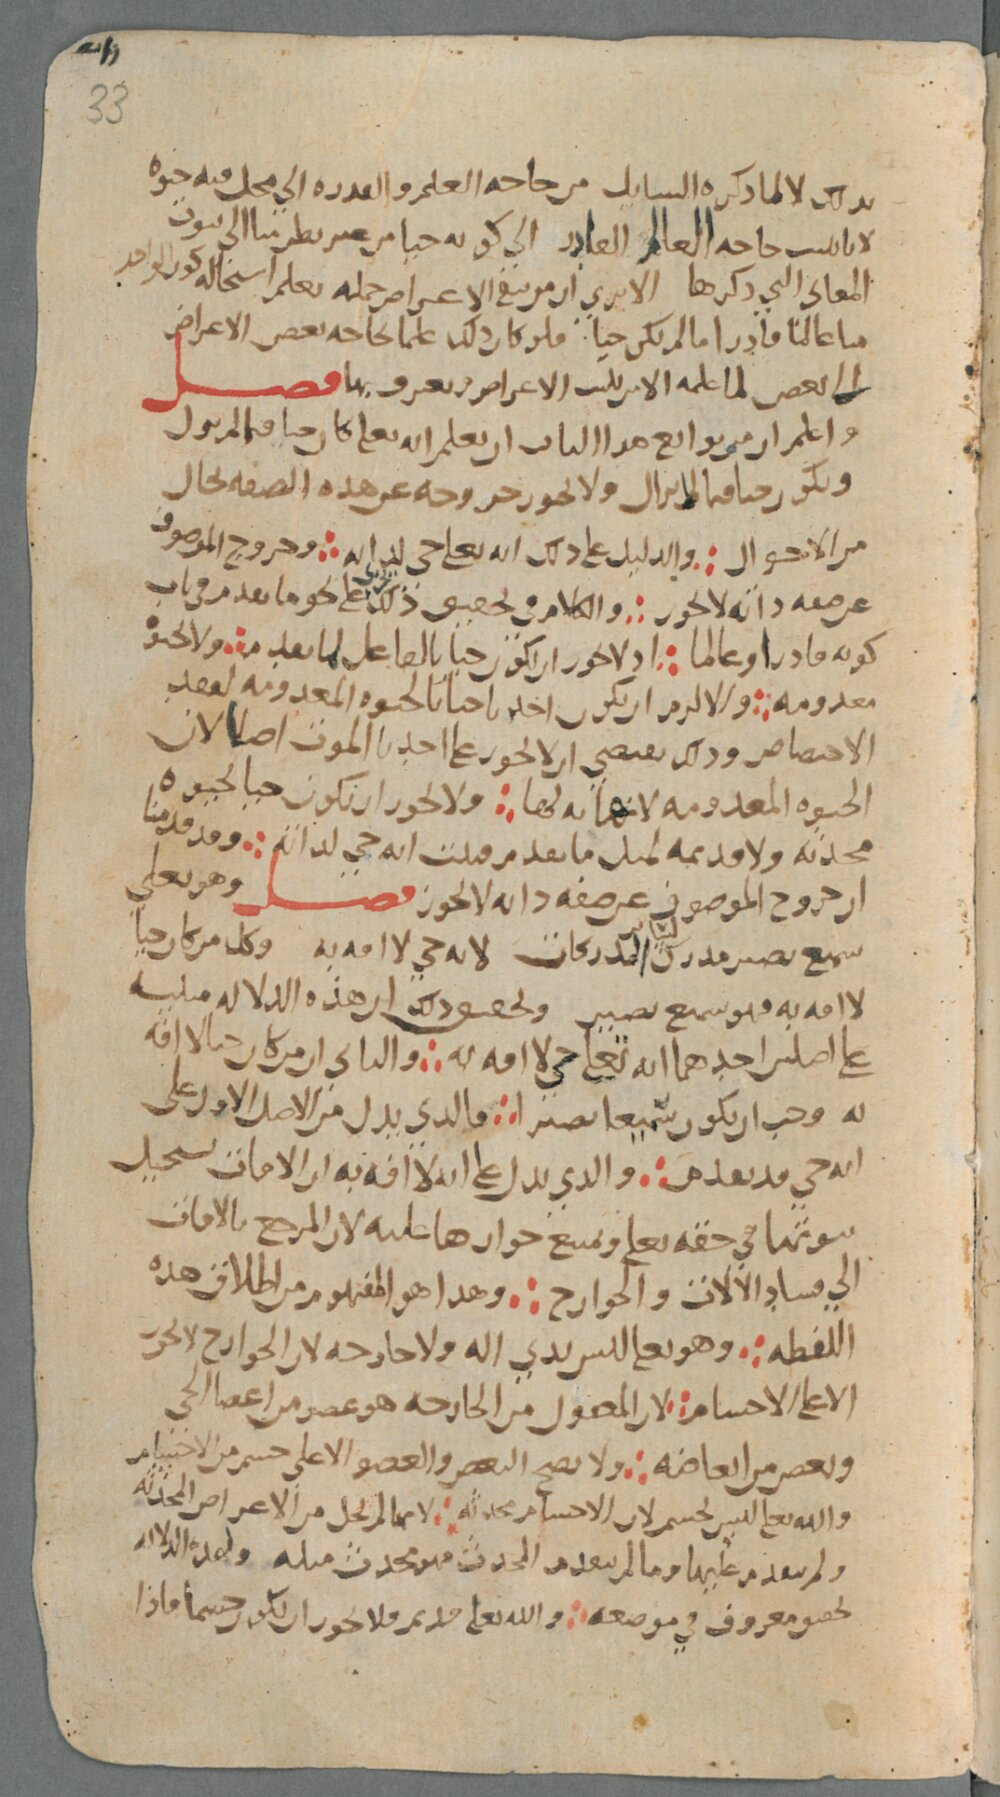 33
بذلك لا لما ذكره السايل من حاجه العلم والقدره الى محل فيه حيوه
لانا نثبت حاجه العالم القادر الى كونه حيا من غير نظر منا الى ثبوت
المعانى التي ذكرها الا ترى ان من نفى الاعراض جمله يعلم استحاله كون الواحد
منا عالما قادرا ما لم يكن حيا فلو كان ذلك علما لحاجه بعض الاعراض
الى بعض لما علمه الا من يثبت الاعراض ويعترف بها فصل
واعلم ان من توابع هذا الباب ان يعلم انه تعلى كان حيا فيما لم يزل
ويكون حيا فيما لا يزال ولا يجوز خروجه عن هذه الصفه بحال
من الاحوال والدليل على ذلك انه تعلى حي لذاته وخروج الموصوف
عن صفه ذاته لا يجوز والكلام في تحقيق ذلك يجرى على نحو ما تقدم في باب
كونه قادرا وعالما اذ لا يجوز ان يكون حيا بالفاعل لما تقدم ولا لحيوة
معدومه والا لزم ان يكون احدنا حيا بالحيوه المعدومه لفقد
الاختصاص وذلك يقتضي ان لا يجوز على احدنا الموت اصلا لان
الحيوه المعدومه لا نهايه لها ولا يجوز ان يكون حيا لحيوه
محدثه ولا قديمه لمثل ما تقدم فثبت انه حي لذاته وقد قدمنا
ان خروج الموصوف عن صفه ذاته لا يجوز فصل وهو تعلى
سميع بصير مدرك للمدركات لانه حي لا افه به وكل من كان حيا
لا افه به فهو سميع بصير وتحقيق ذلك ان هذه الدلاله مبنيه
على اصلين احدهما انه تعلى حي لا افه به والثانى ان من كان حيا لا افه
به وجب ان يكون سميعا بصيرا فالذي يدل من الاصل الاول على
انه حي قد تقدم والذي يدل على انه لا افه به ان الافات يستحيل
ثبوتها في حقه تعلى ويمتنع جوازها عليه لان المرجع بالافات
الى فساد الالات والجوارح وهذا هو المفهوم من اطلاق هذه
اللفظه وهو تعلى ليس بذي اله ولا جارحه لان الجوارح لا تجوز
الا على الاجسام لان المعقول من الجارحه هو عضو من اعضا الحي
وبعض من ابعاضه ولا يصح البعض والعضو الا على جسم من الاجسام
والله تعلى ليس بجسم لان الاجسام محدثه لانها لم تخل من الاعراض المحدثه
ولم تتقدم عليها وما لم يتقدم المحدث فهو محدث مثله ولهذه الدلاله
تحقيق معروف في موضعه والله تعلى قديم فلا يجوز ان يكون جسما فاذا